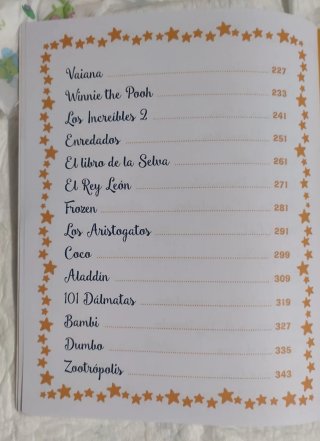 Vaiana 227
Winnie the Pooh 233
Los Increíbles 2 241
Enredados 251
El libro de la Selva 261
El Rey León 271
Frozen 281
Los Aristogatos 291
Coco 299
Aladdín 309
101 Dálmatas 319
Bambi 327
Dumbo 335
Zootrópolis 343